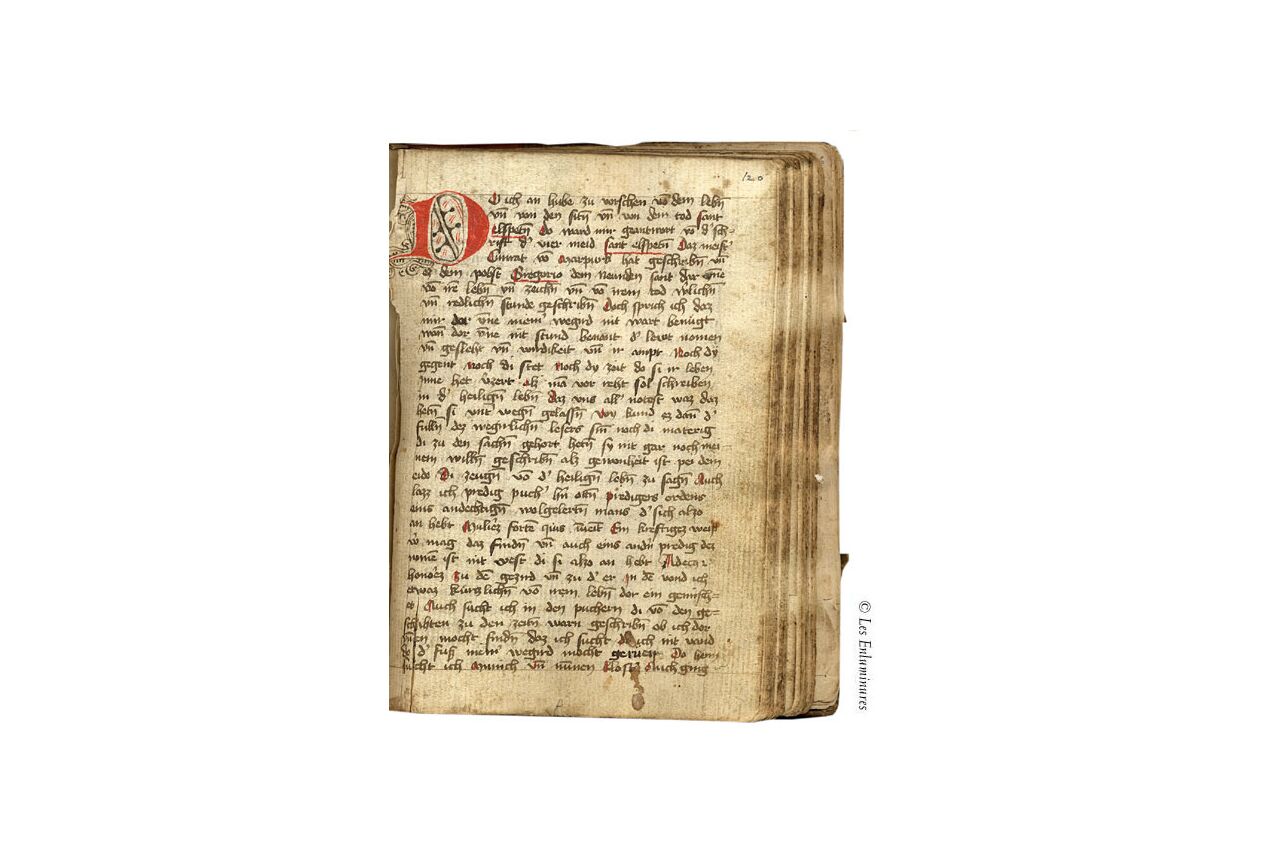 120
Do ich an hube zu vorschen vō dem lebn̄
vn̄ von den sitn̄ vn̄ von dem tod sant
elspetn̄ Do ward mir geantwort vō d' sch-
rift d' vier meid sant elspetn̄ Daz meist'
Cunrat vō Marpurk hat geschribn̄ vn̄
dem pobst Gregorio dem Neunden sant
vō ire lebn̄ vn̄ zeichn̄ vn̄ vō irem tod
vn̄ redlichn̄ stunde geschribn̄ Doch sprich ich daz
mir meim' wegird nit wart benugt
nit stund benant d' lewt nomen
vn̄ geslecht vn̄ wirdikeit vn̄ ir ampt Noch dy
gegent Noch di stet Noch dy zeit do si ir leben
inne het v'zert Als mā vor reht sol schreiben
in d' heilign̄ lebn̄ Daz vns all' notest waz daz
hetn̄ si vnt' wegn̄ gelassn̄ Von kund ez dan̄ d'
fulln̄ dez wegirlichn̄ lesers sin̄ noch di materig
di zu den sachn̄ gehort hetn̄ sy nit gar noch mei
nem willn̄ geschribn̄ alz gewonheit ist pei dem
eide Di zeugn̄ vō d' heilign̄ lebn̄ zu sagn̄ Auch
lazz ich predig puch predigers ordens
eins andechtign̄ wolgelertn̄ mans d' sich also
an hebt Mulierē fortē quis inveīet Ein kreftigez weip
mag daz findn̄ vn̄ auch eins andn̄ predig dez
nome ist nit west di si also an hebt Ad
honorē zu d' er In dē vond ich
etwaz kurzlichn̄ vō irem lebn̄ dor ein gemisch-
et Auch sucht ich in den puchern di vō den ge-
schihten zu den zeitn̄ warn geschribn̄ ob ich dor
innen mocht findn̄ daz ich sucht do ich nit vand
do d' fuß mein' wegird mocht geruen Do hem
sucht ich Munich vn̄ nunnen klost' Auch ging
© Les Enluminures